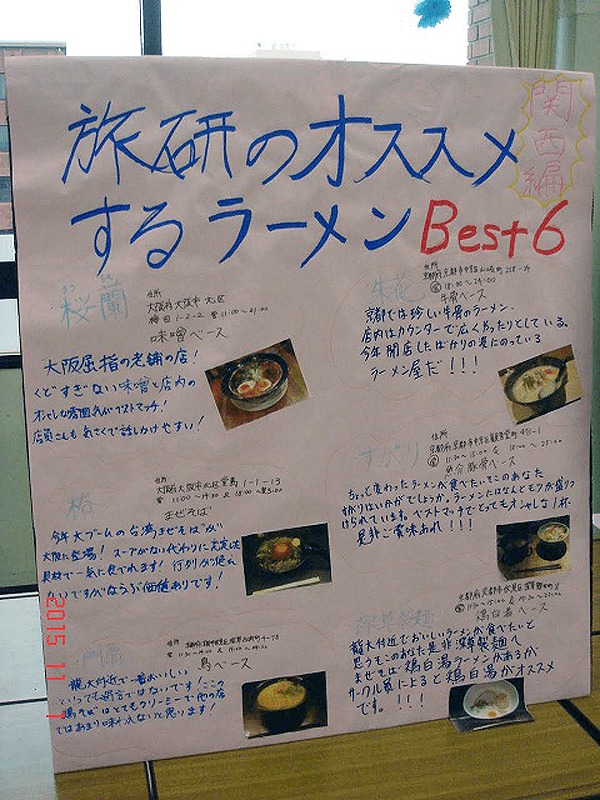 旅研のオススメ
するラーメン Best 6
関西編
桜蘭
住所
大阪府大阪市北区
梅田1-2-2 営11:00~21:00
味噌ベース
大阪屈指の老舗の店!
くどすぎない味噌と店内の
オシャレな雰囲気がベストマッチ!
店員さんも気さくで話しかけやすい!
椿
住所
大阪府大阪市北区堂島1-1-13
まぜそば
今年大ブームの台湾まぜそばが
大阪に登場! スープがない代わりに充実した
具材で一気に食べれます! 行列が絶え
ないですがならぶ価値ありです!
住所
鳥ベース
龍大付近で一番おいしい
といっても過言ではないです! ここの
鶏そばはとてもクリーミーで他の店
ではあまり味わえないと思います!
牛花
住所
18:00~24:00
牛骨ベース
京都では珍しい牛骨のラーメン。
店内はカウンターで広くゆったりとしている。
今年開店したばかりの波にのっている
ラーメン屋だ!!!
すがり
住所
魚介豚骨ベース
ちょと変わったラーメンが食べたいそこのあなた
すがりはいかがでしょうか。ラーメンにはなんとモツが盛りつ
けられています。ベストマッチでとってもオシャレな1杯
是非ご賞味あれ!!!
深草製麺
住所
鶏白湯ベース
龍大付近でおいしいラーメンが食べたいと
思うそこのあなた是非深草製麺へ
まぜそば、鶏白湯ラーメンがあるが
サークル員によると鶏白湯がオススメ
です。!!!
2015 11 1